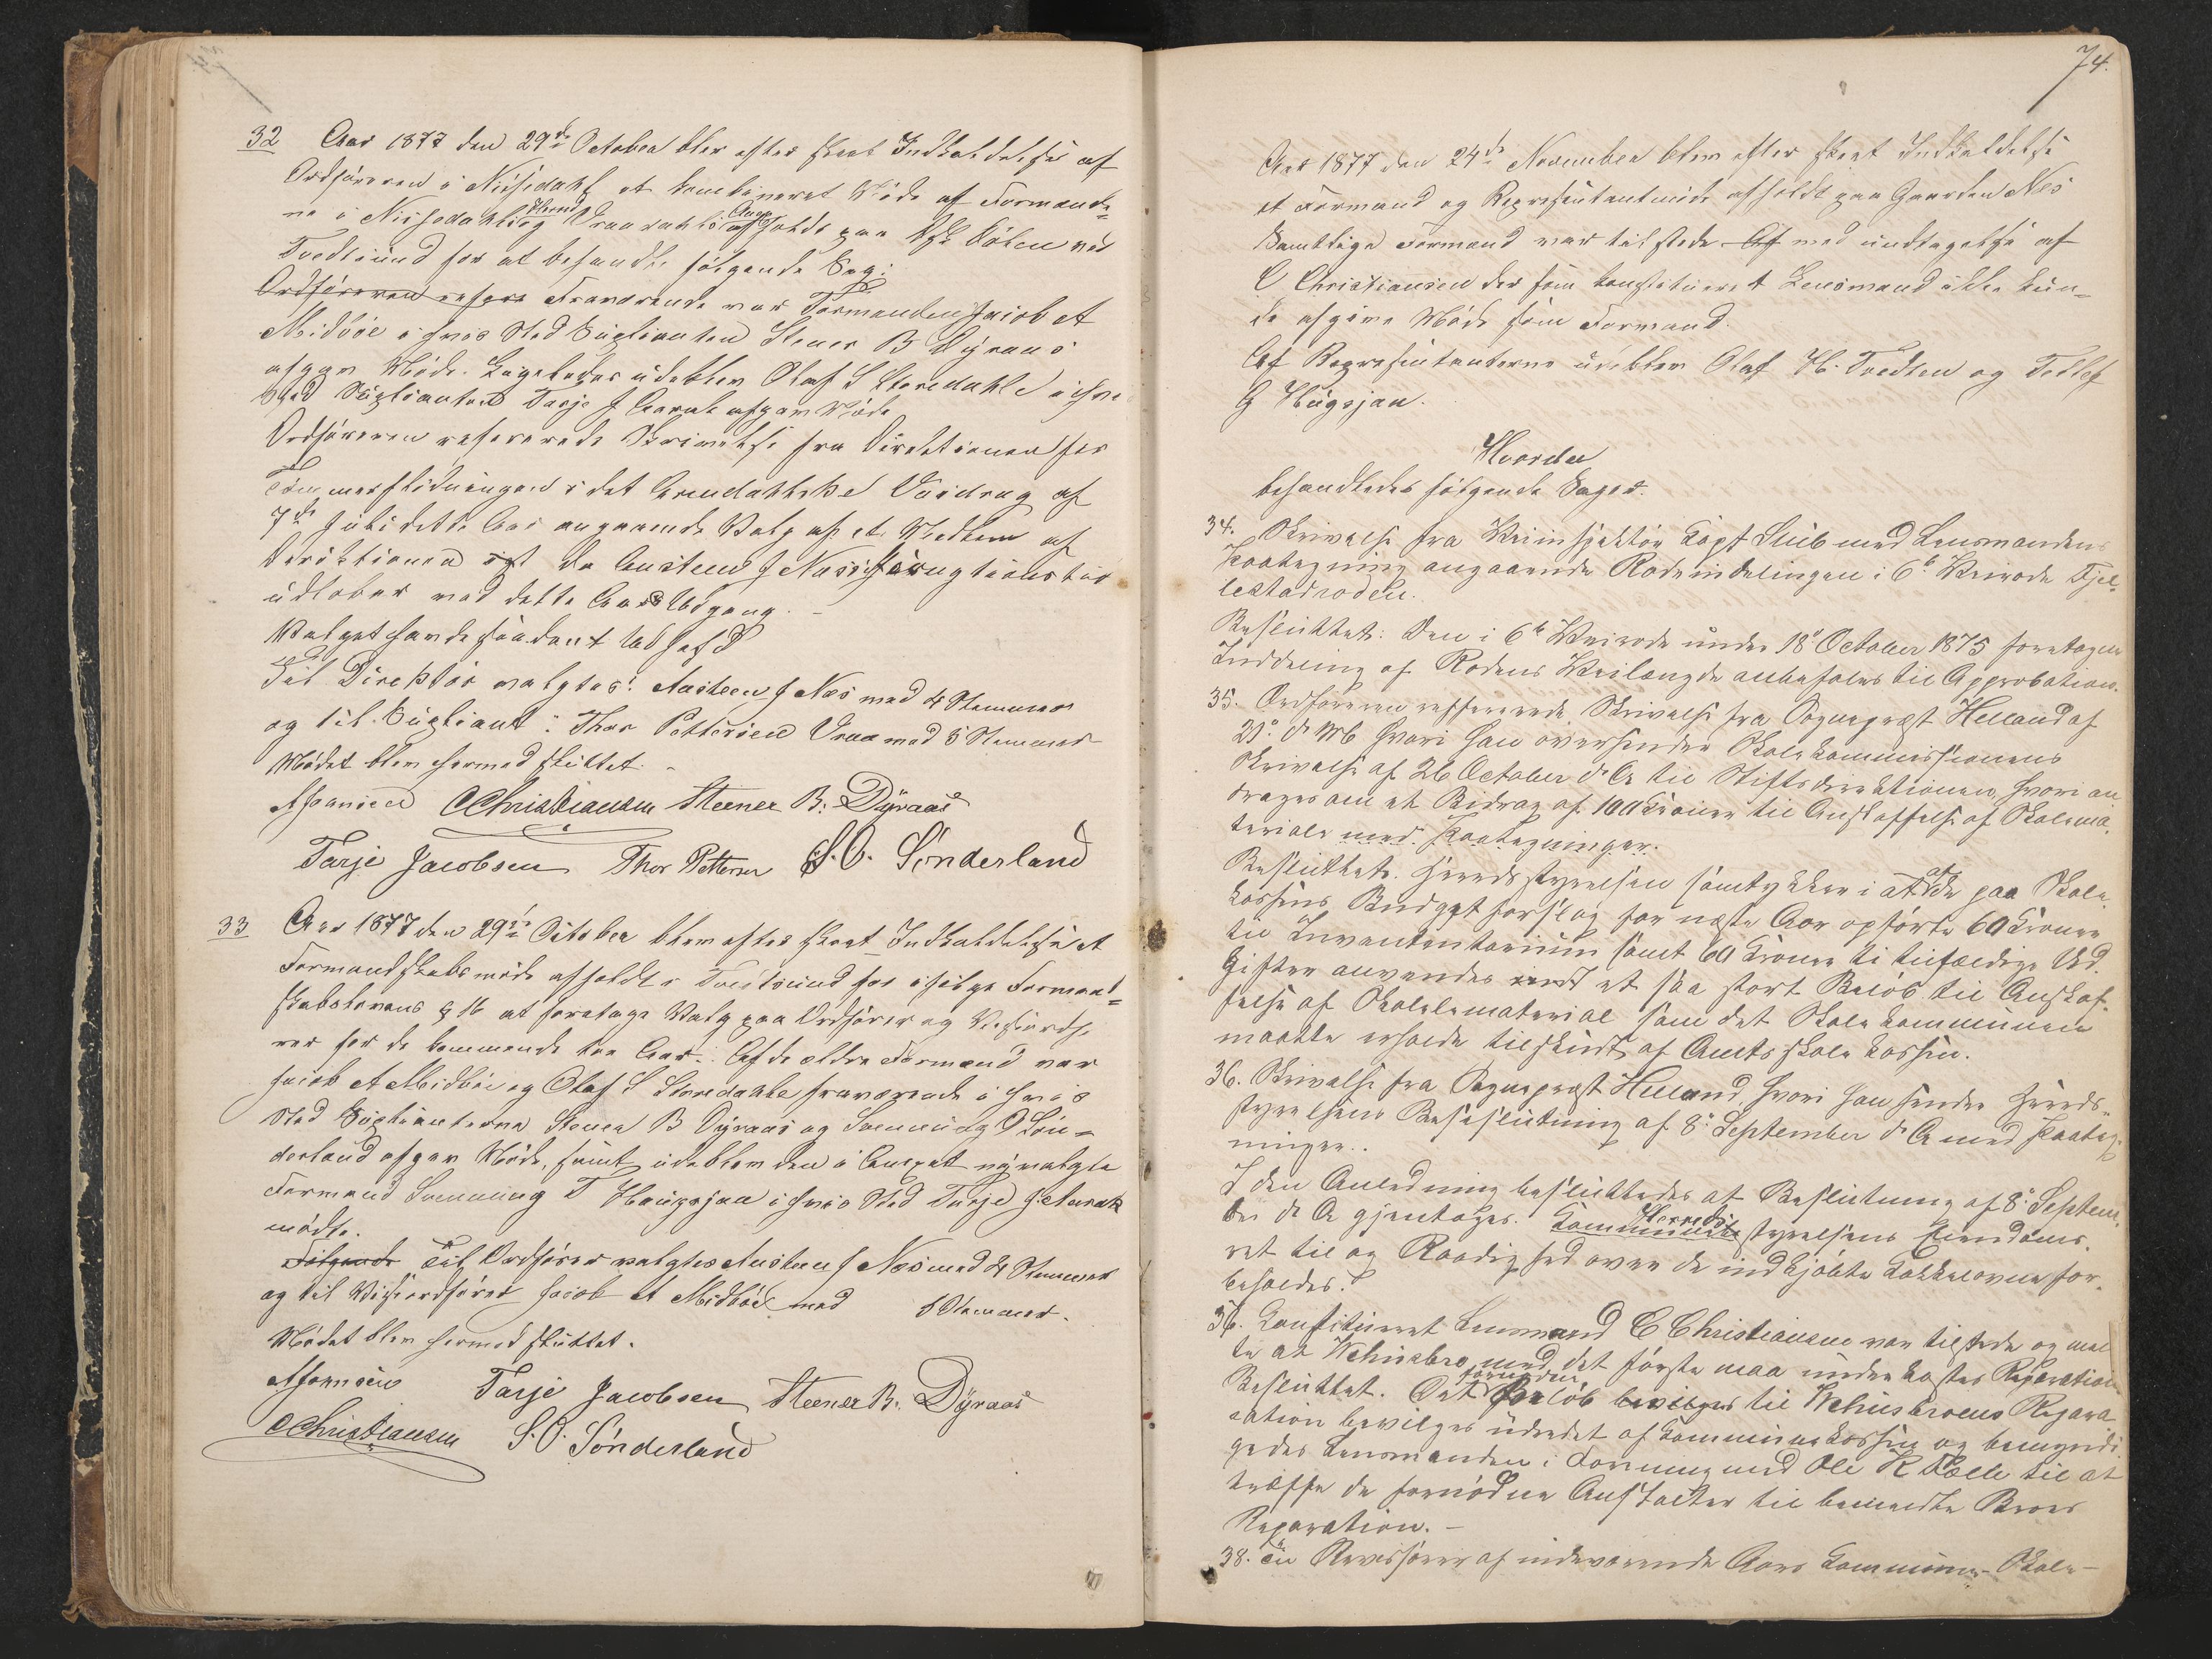 32 Aar 1877 den 29de October blev efter skeet Indkaldelse af
Ordføreren i Nissedahl et kombineret Møde af Formænde-
ne i Nissedahls Hrrd og Vraadahls Annex afholdt paa Sølen ved
Tvedtsund for at behandle følgende Sag:
Ordføreren refere Fraværende var Formanden Jacob A
Midbøe i hvis Sted Supleanten Steener B Dyraas
afgav Møde. Ligeledes udeblev Olaf S Storedahle i hvis
Sted Supleanten Tarje J Aarak afgav Møde
Ordføreren refererede Skrivelse fra Direktionen for
Tømmerflødningen i det Arendahlske Vasdrag af
7de Juli dette Aar angaaende Valg af et Medlem af
Direktionen da Austeen J Næs's Fungtionstid
udløber ved dette Aars Udgang. –
Valget havde saadant Udfald
Til Direktør valgtes: Austeen J Næs med 4 Stemmer
og til Supleant: Thor Pettersen Vraa med 5 Stemmer
Mødet blev hermed sluttet. –
CChristiansen Steener B. Dyraas
Tarje Jacobsen Thor Pettersen S. O. Sønderland
33 Aar 1877 den 29de October blev efter skeet Indkaldelse et
Formandskabsmøde afholdt i Tveitsund for i følge Formand-
skabslovens § 16 at foretage Valg paa Ordfører og Viseordfø-
rer for de kommende to Aar. Af de ældre Formænd var
Jacob A Midbøe og Olaf S Storedahle fraværende i hvis
Sted Supleanterne Steener B Dyraas og Svenning O Søn-
derland afgav Møde, samt udeblev den i August nyvalgte
Formand Svenning T Haugsjaa i hvis Sted Tarje J. Aarak
mødte.
Følgende Til Ordfører valgtes Austeen J Næs med 4 Stemmer
og til Viseordfører Jacob A Midbøe med 5 Stemmer.
Mødet blev hermed sluttet.
Tarje Jacobsen Steener B. Dyraas
CChristiansen S. O. Sønderland
74.
Aar 1877 den 24de November blev efter skeet Indkaldelse
et Formand og Representantmøde afholdt paa Gaarden Nes
Samtlige Formænd var tilstede Af med undtagelse af
C Christiansen der som konstitueret Lensmand ikke kun-
de afgive Møde som Formand.
Af Representanterne udeblev Olaf H. Tvedten og Tellef
G Hugsjaa.
Hvorda
behandledes følgende Sager.
34. Skrivelse fra Veiinspektør Capt Stub med Lensmandens
Paategning angaaende Rodeinddelingen i 6te Veirode Fjel-
lestadroden.
Besluttet: Den i 6te Veirode under 18de October 1875 foretagne
Inddeling af Rodens Veilængde anbefales til Approbation.
35. Ordføreren reffererede Skrivelse fra Sogneprest Helland af
21de d Mb hvori han oversender Skolekommissionens
Skrivelse af 26 October d. A til Stiftsdirektionen, hvori an
drages om et Bidrag af 100 Kroner til Anskaffelse af Skolema-
teriale med Paategninger.
Besluttet. Heredsstyrelsen samtykker i at af de paa Skole-
kassens Budgetforslag for næste Aar opførte 60 Kroner
til Invententarium samt 60 Kroner til tilfældige Ud-
gifter anvendes indt et saa stort Beløb til Anskaf-
felse af Skolelematerial som det Skolekommunen
maatte erholde tilskudt af Amtsskolekassen.
36. Skrivelse fra Sogneprest Helland, hvori han sender Hereds-
styrelsens Beseslutning af 8de September d. A med Paateg-
ninger.
I den Anledning besluttedes at Beslutning af 8de Septem-
ber d. A gjentages. Kommune Herreds styrelsens Eiendoms-
ret til og Raadighed over de indkjøbte Kakkelovne for-
beholdes.
36. Constitueret Lensmand C Christiansen var tilstede og mel
te at Vehusbro med det første maa underkastes Reparation
Besluttet. Det fornødne Beløb bevilges til Vehusbroens Repara
ration bevilges udredet af Kommunekassen og bemyndi
gedes Lensmanden i Forening med Ole K Tælle til at
træffe de fornødne Anstalter til bemeldte Broes
Reparation. –
38. Til Revisorer af indeværende Aars Kommune- Skole-